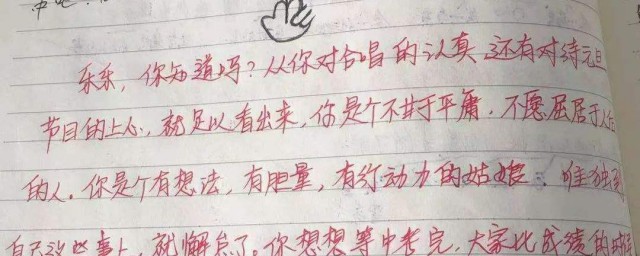 乐乐，你知道吗？从你对合唱的认真 还有对待元旦
节目的上心，就足以看出来，你是个不甘于平庸，不愿屈居于人后
的人。你是个有想法，有胆量，有行动力的姑娘。唯独到
自己这些事上，就懈怠了。你想想等中考完，大家比成绩的时